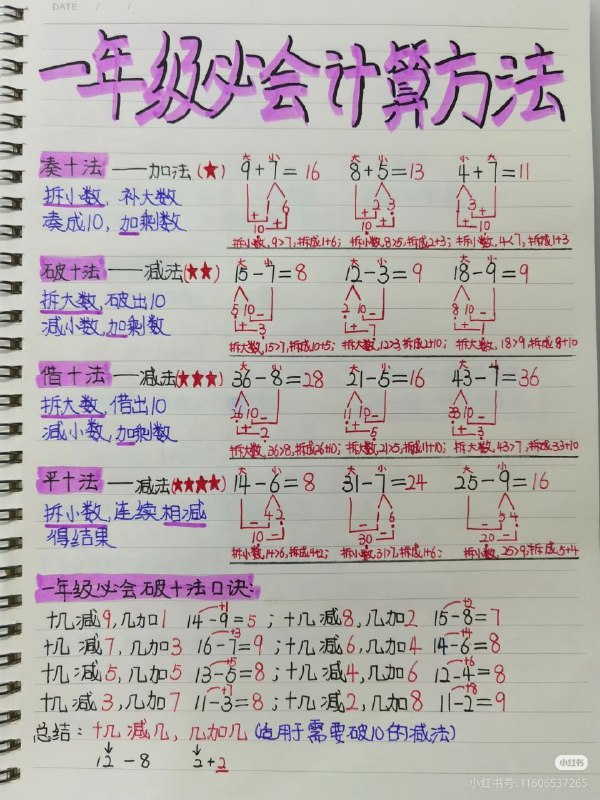 DATE / /
一年级必会计算方法
凑十法——加法(★) 9+7=16 8+5=13 4+7=11
拆小数,补大数
凑成10,加剩数
拆小数,9>7,拆成1+6; 拆小数,8>5,拆成2+3; 拆小数,4<7,拆成1+3
破十法——减法(★★) 15-7=8 12-3=9 18-9=9
拆大数,破出10
减小数,加剩数
拆大数,15>7,拆成10+5; 拆大数,12>3,拆成2+10; 拆大数,18>9,拆成8+10
借十法——减法(★★★) 36-8=28 21-5=16 43-7=36
拆大数,借出10
减小数,加剩数
拆大数,36>8,拆成26+10; 拆大数,21>5,拆成11+10; 拆大数,43>7,拆成33+10
平十法——减法(★★★★) 14-6=8 31-7=24 25-9=16
拆小数,连续相减
得结果
拆小数,14>6,拆成4+2; 拆小数,31>7,拆成1+6; 拆小数,25>9,拆成5+4
一年级必会破十法口诀:
十几减9,几加1 14-9=5; 十几减8,几加2 15-8=7
十几减7,几加3 16-7=9; 十几减6,几加4 14-6=8
十几减5,几加5 13-5=8; 十几减4,几加6 12-4=8
十几减3,几加7 11-3=8; 十几减2,几加8 11-2=9
总结:十几减几,几加几(适用于需要破10的减法)
12-8 2+2
小红书
小红书号:11606537265